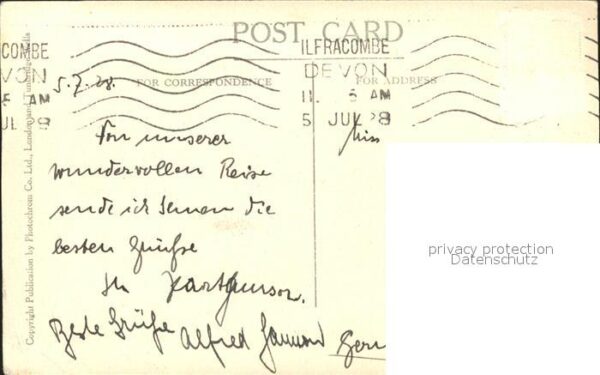 POST CARD
COMBE
VON
AM
JUL
ILFRACOMBE
DEVON
AM
5 JUL 28
FOR CORRESPONDENCE
FOR ADDRESS
5.7.28.
Miss
Von unserer
wundervollen Reise
sende ich Ihnen die
besten Grüße
Ihr
Beste Grüße Alfred
Copyright Publication by Photochrom Co. Ltd., London and Tunbridge Wells
privacy protection
Datenschutz